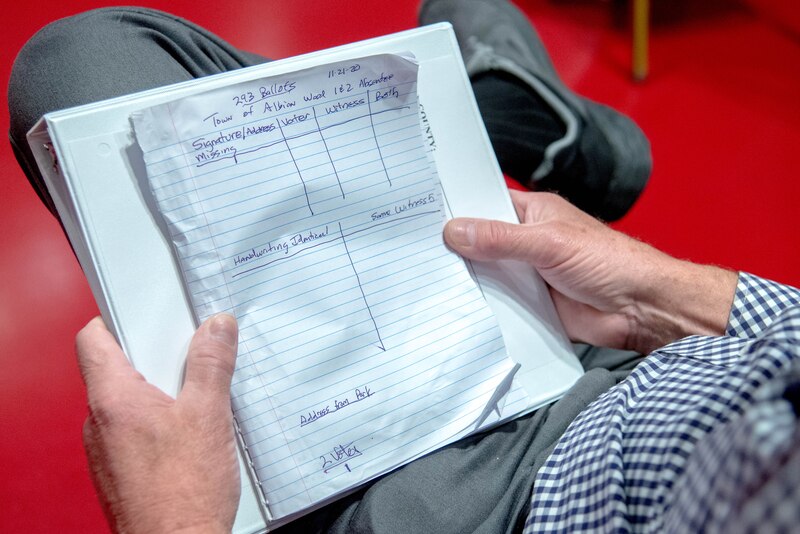 293 Ballots 11-21-20
Town of Albion Ward 1&2 Absentee
Signature/Address Voter Witness Both
Missing
Handwriting Identical Same Witness
Address from Park
2 Votes
1
COUNTY: